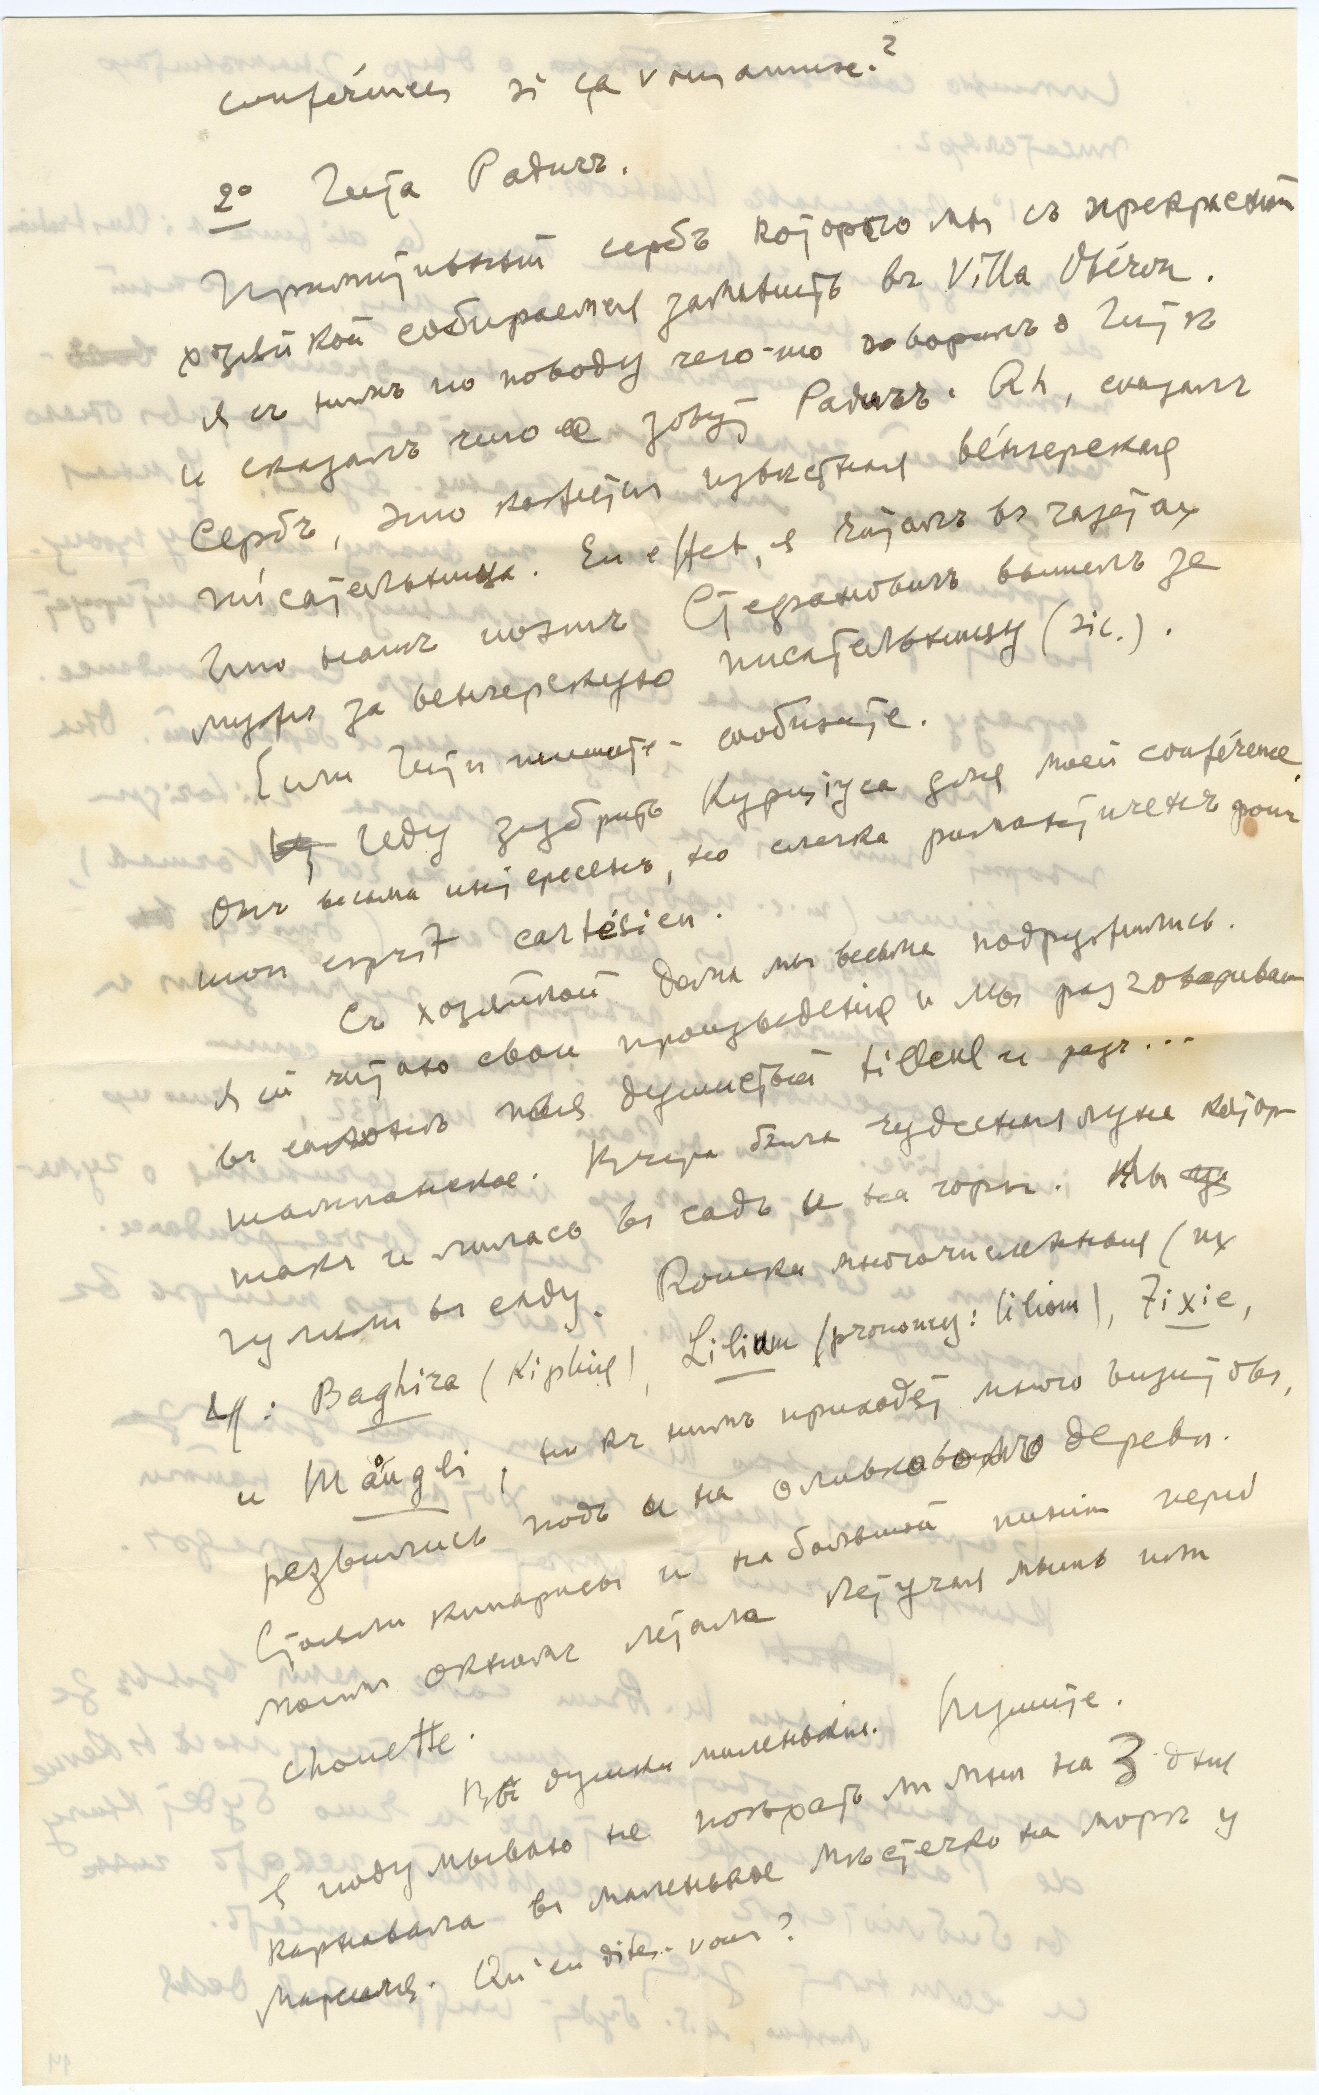 conférences si ça vous amuse?
2° Гита Радичъ.
Примитивный сербъ котораго мы съ прекрасной
хозяйкой собираемся заманить въ Villa Obéron.
я съ нимъ по поводу чего-то говорилъ о Гитѣ
и сказалъ что ее зовутъ Радичъ. Ah, сказалъ
Сербъ, это кажется извѣстная венгерская
писательница. En effet, я читалъ въ газетахъ
что нашъ поэтъ Стефановичъ вышелъ за
мужъ за венгерскую писательницу (sic.).
Если Гита пишетъ - сообщите.
Буду зубрить Курціуса для моей conférence,
Онъ весьма интересенъ, но слегка романтиченъ pour
mon esprit cartésien.
Съ хозяйкой дома мы весьма подружились.
я ей читаю свои произведенія и мы разговариваем
въ душистый tilleul и разъ...
шампанское. Вчера была чудесная луна котор
такъ и лилась въ садъ и на горы. Мы
гуляли въ саду. Кошки многочисленныя (их
4: Baghira (Kipling), Lilium (prononcez: liliom), Fixie,
и Måugli, но къ нимъ приходятъ много визитовъ,
резвились подъ и на оливковомъ дерева.
Стояли кипарисы и на большой пиніи перед
моимъ окномъ летала летучая мышь или
chouette.
Вы душки маленькія. Пишите.
Я подумываю не поѣхать ли мнѣ на 3 дня
карнавала въ маленькое мѣстечко на морѣ у
Марселя. Qu'en dites-vous?